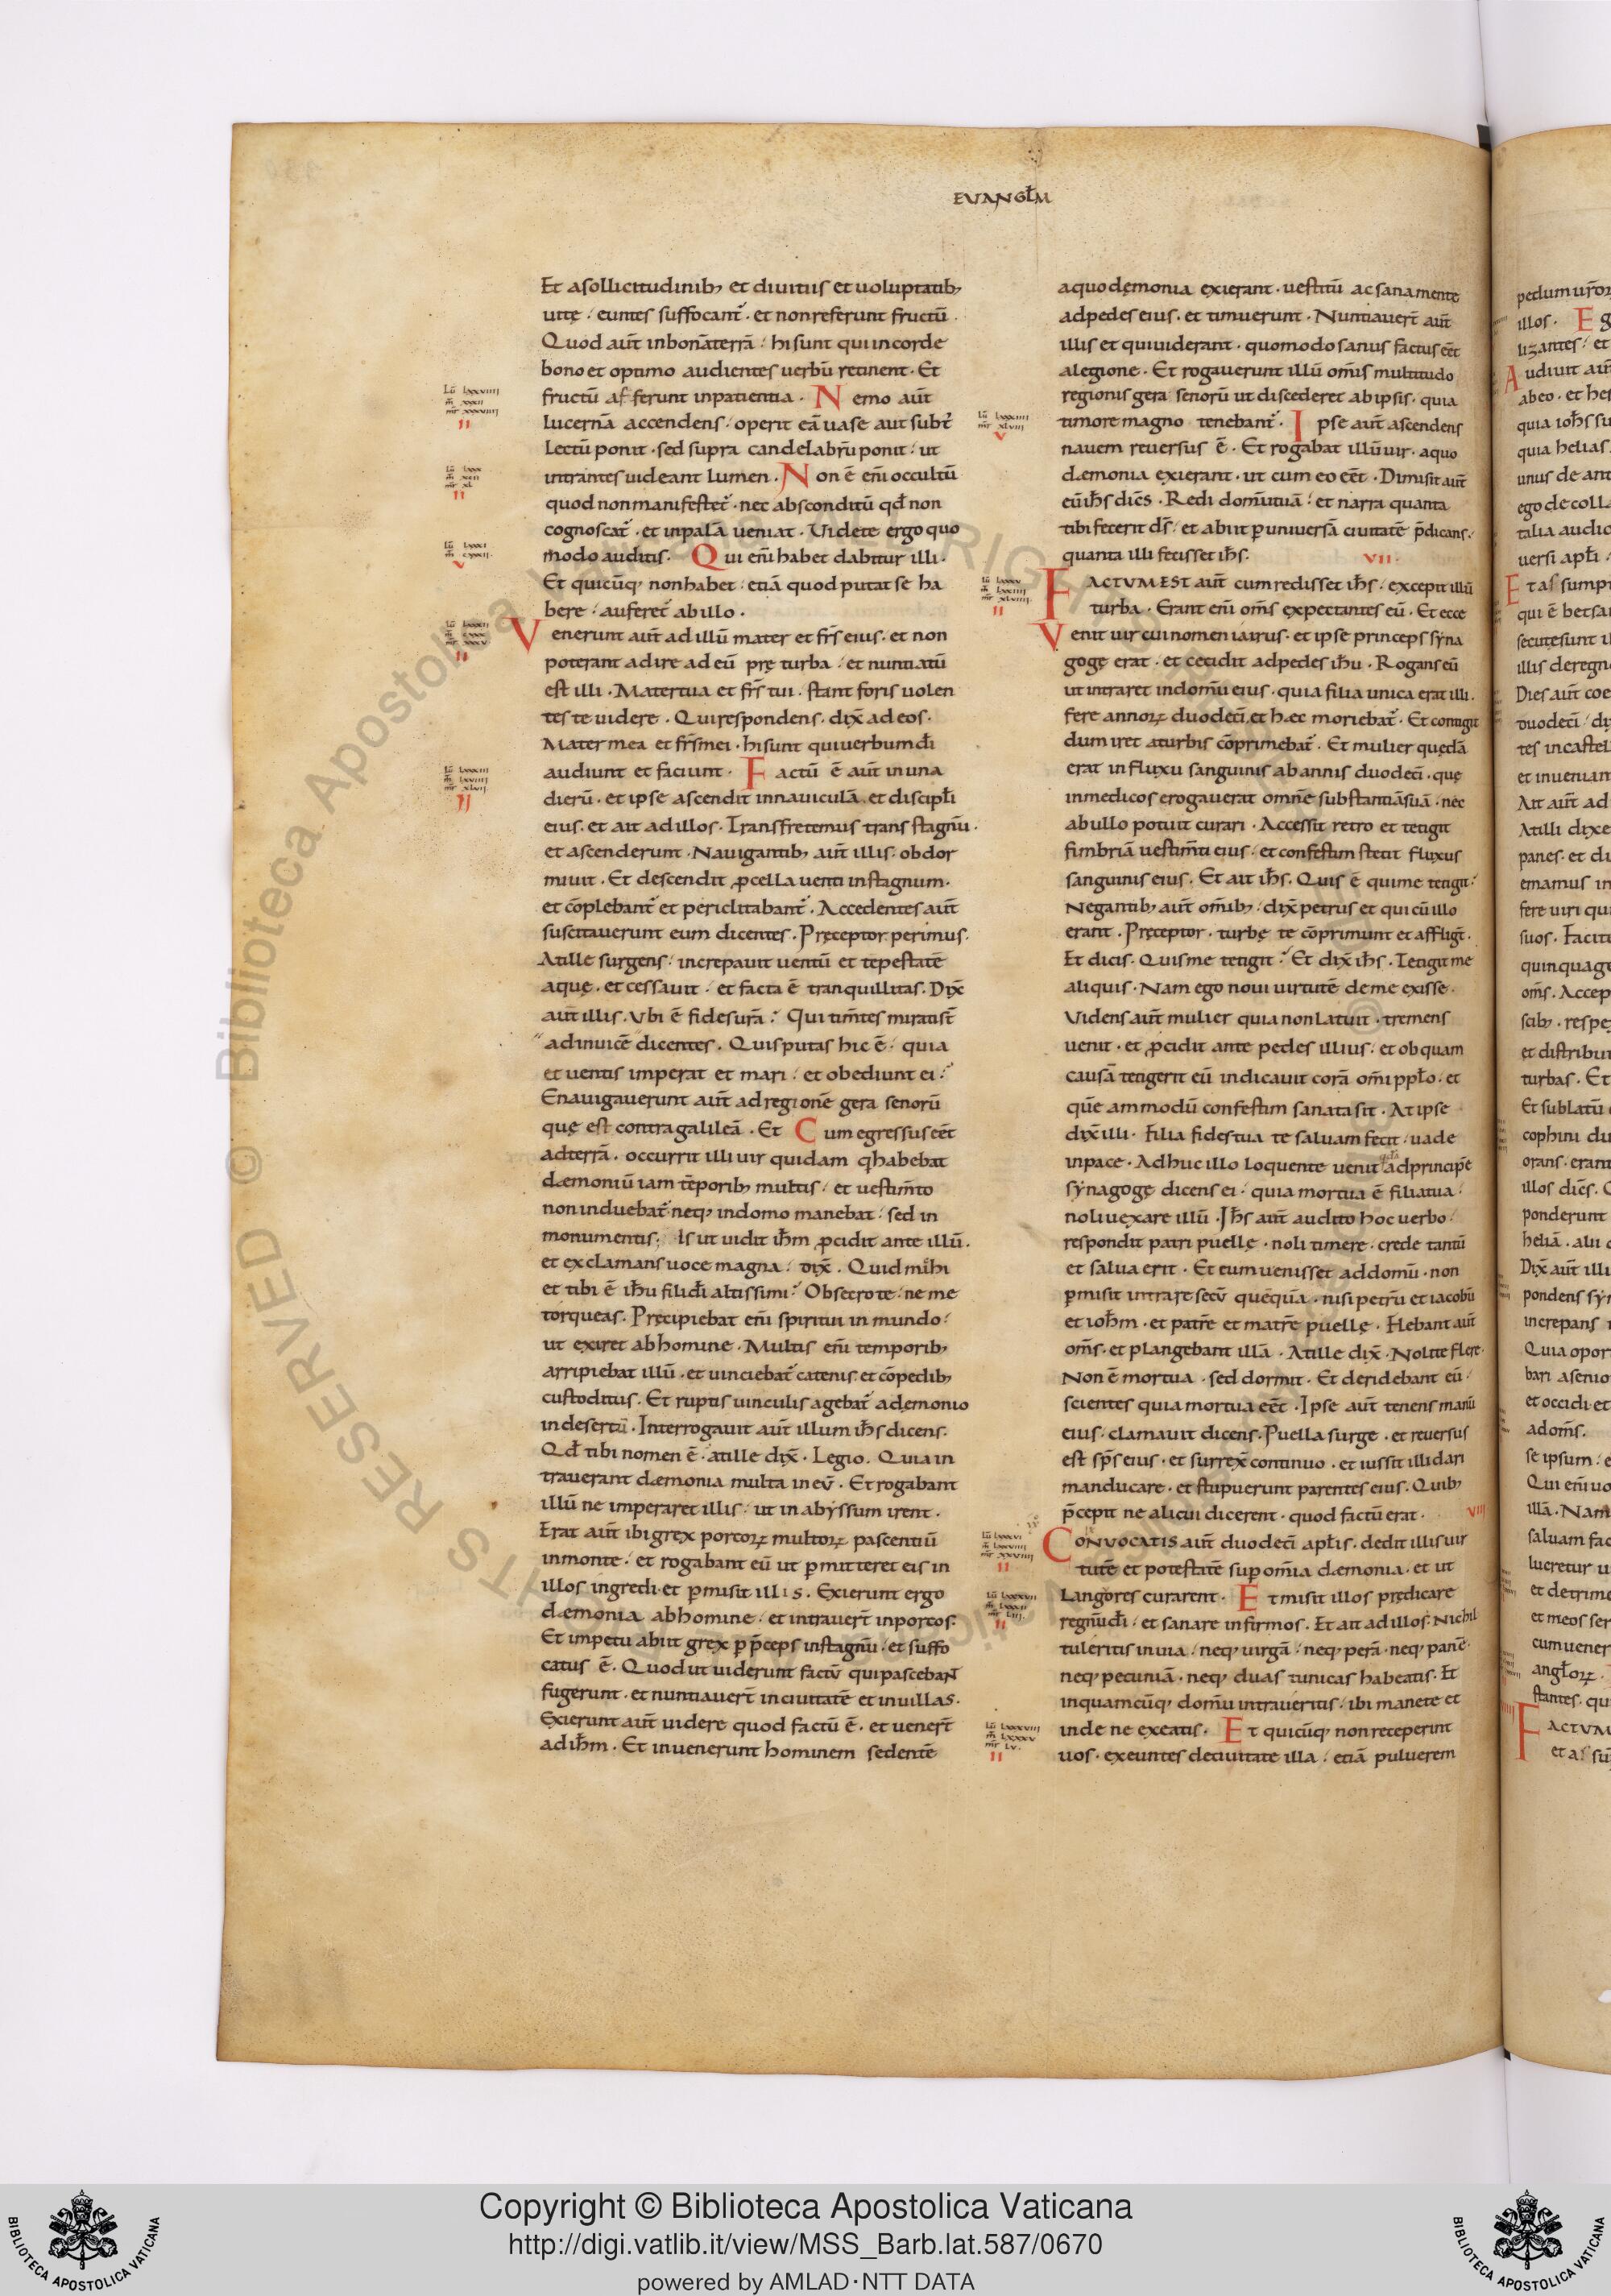 EVANGL̄M
Et asollicitudinib; et diuitiis et uoluptatib;
uitę. euntes suffocant᷑. et nonreferunt fructū.
Quod aut̄ inbonāterrā. hisunt quiincorde
bono et optimo audientes uerbū retinent. Et
fructū afferunt inpatientia. Nemo aut̄
lucernā accendens. operit eā uase aut subt᷑
Lectū ponit. sed supra candelabrū ponit. ut
intrantes uideant lumen. Non ē eni occultū
quod nonmanifestet᷑. nec absconditū qđ non
cognoscat᷑. et inpalā ueniat. Uidete ergo quo
modo auditis. Qui eni habet dabitur illi.
Et quicūq; nonhabet. etiā quod putat se ha
bere. auferet᷑ abillo.
Venerunt aut̄ ad illū mater et frs̄ eius. et non
poterant adire ad eū prę turba. et nuntiatū
est illi. Matertua et frs̄ tui. stant foris uolen
tes te uidere. Quirespondens. dix̄ ad eos.
Mater mea et frs̄mei. hisunt quiuerbum dī
audiunt et faciunt. Factū ē aut̄ inuna
dierū. et ipse ascendit innauiculā. et discipłi
eius. et ait ad illos. Transfretemus trans stagnū.
et ascenderunt. Nauigantib; aut̄ illis. obdor
miuit. Et descendit ꝓcella uenti instagnum.
et cōplebant᷑ et periclitabant᷑. Accedentes aut̄
suscitauerunt eum dicentes. Pręceptor perimus.
Atille surgens. increpauit uentū et tēpestatē
aquę. et cessauit. et facta ē tranquillitas. Dix̄
aut̄ illis. Vbi ē fidesurā? Qui tim̄tes miratist̄
adinuicē dicentes. Quisputas hic ē. quia
et uentis imperat et mari. et obediunt ei?
Enauigauerunt aut̄ ad regionē gera senorū
quę est contragalileā. Et Cum egressus eēt
adterrā. occurrit illi uir quidam qhabebat
dæmoniū iam tēporib; multis. et uestim̄to
non induebat᷑. neq; indomo manebat. sed in
monumentis. Is ut uidit ihm̄ ꝓcidit ante illū.
et exclamans uoce magna. dix̄. Quid mihi
et tibi ē ihu filidī altissimi? Obsecro te. ne me
torqueas. Pręcipiebat eni spiritui in mundo.
ut exiret abhomine. Multis eni temporib;
arripiebat illū. et uinciebat᷑ catenis. et cōpedib;
custoditus. Et ruptis uinculis agebat᷑ ademonio
indesertū. Interrogauit aut̄ illum ihs̄ dicens.
Qđ tibi nomen ē. atille dix̄. Legio. Quia in
trauerant dæmonia multa ineū. Et rogabant
illū ne imperaret illis. ut in abyssum irent.
Erat aut̄ ibi grex porcoꝝ multoꝝ pascentiū
inmonte. et rogabant eū ut ꝑmitteret eis in
illos ingredi. et ꝑmisit illis. Exierunt ergo
dæmonia abhomine. et intrauert̄ inporcos.
Et impetu abiit grex ꝑ p̄ceps instagnū. et suffo
catus ē. Quod ut uiderunt factū quipascebant
fugerunt. et nuntiauert̄ inciuitatē et inuillas.
Exierunt aut̄ uidere quod factū ē. et uenert̄
adihm̄. Et inuenerunt hominem sedentē
aquodęmonia exierant. uestitū ac sanamente
adpedes eius. et timuerunt. Nuntiauert̄ aut̄
illis et quiuiderant. quomodo sanus factus eēt
alegione. Et rogauerunt illū oms̄ multitudo
regionis gera senorū ut discederet abipsis. quia
timore magno tenebant᷑. Ipse aut̄ ascendens
nauem reuersus ē. Et rogabat illūuir. aquo
dæmonia exierant. ut cum eo eēt. Dimisit aut̄
eū ihs̄ dicēs. Redi domūtuā. et narra quanta
tibi fecerit ds̄. et abiit ꝑuniuersā ciuitatē p̄dicans.
quanta illi fecisset ihs̄. VII.
FACTVM EST aut̄ cum redisset ihs̄. excepit illū
turba. Erant eni oms̄ expectantes eū. Et ecce
Venit uir cuinomen iairus. et ipse princeps syna
gogę erat. et cecidit adpedes ihu. Rogans eū
ut intraret indomū eius. quia filia unica erat illi.
fere annoꝝ duodeci. et hæc moriebat᷑. Et contigit
dum iret aturbis cōprimebat᷑. Et mulier quędā
erat influxu sanguinis abannis duodeci. quę
inmedicos erogauerat omnē substantiāsuā. nec
abullo potuit curari. Accessit retro et tetigit
fimbriā uestim̄ti eius. et confestim stetit fluxus
sanguinis eius. Et ait ihs̄. Quis ē quime tetigit?
Negantib; aut̄ omib;. dix̄ petrus et qui cū illo
erant. Pręceptor. turbę te cōprimunt et affligt̄.
Et dicis. Quisme tetigit? Et dix̄ ihs̄. Tetigit me
aliquis. Nam ego noui uirtutē deme exisse.
Videns aut̄ mulier quia nonLatuit. tremens
uenit. et ꝓcidit ante pedes illius. et obquam
causā tetigerit eū indicauit corā omi ppło. et
quē ammodū confestim sanata sit. At ipse
dix̄ illi. Filia fidestua te saluam fecit. uade
inpace. Adhuc illo loquente uenit adprincipē
synagogę dicens ei. quia mortua ē filiatua.
noliuexare illū. Ihs̄ aut̄ audito hoc uerbo.
respondit patri puellę. noli timere. crede tantū
et salua erit. Et cum uenisset addomū. non
ꝑmisit intrare secū quēquā. nisi petrū et iacobū
et iohm̄. et patrē et matrē puellę. Flebant aut̄
oms̄. et plangebant illā. Atille dix̄. Nolite flere.
Non ē mortua. sed dormit. Et deridebant eū.
scientes quia mortua eēt. Ipse aut̄ tenens manū
eius. clamauit dicens. Puella surge. et reuersus
est sps̄ eius. et surrex̄ continuo. et iussit illi dari
manducare. et stupuerunt parentes eius. Quib;
p̄cepit ne alicui dicerent. quod factū erat. VIII
CONVOCATIS aut̄ duodeci apłis. dedit illis uir
tutē et potestatē suꝑ omia dæmonia. et ut
Langores curarent. Et misit illos prędicare
regnūdī. et sanare infirmos. Et ait ad illos. Nichil
tuleritis inuia. neq; uirgā. neq; perā. neq; panē.
neq; pecuniā. neq; duas tunicas habeatis. Et
inquamcūq; domū intraueritis. ibi manete et
inde ne exeatis. Et quicūq; nonreceperint
uos. exeuntes deciuitate illa. etiā puluerem
Copyright © Biblioteca Apostolica Vaticana
http://digi.vatlib.it/view/MSS_Barb.lat.587/0670
powered by AMLAD·NTT DATA